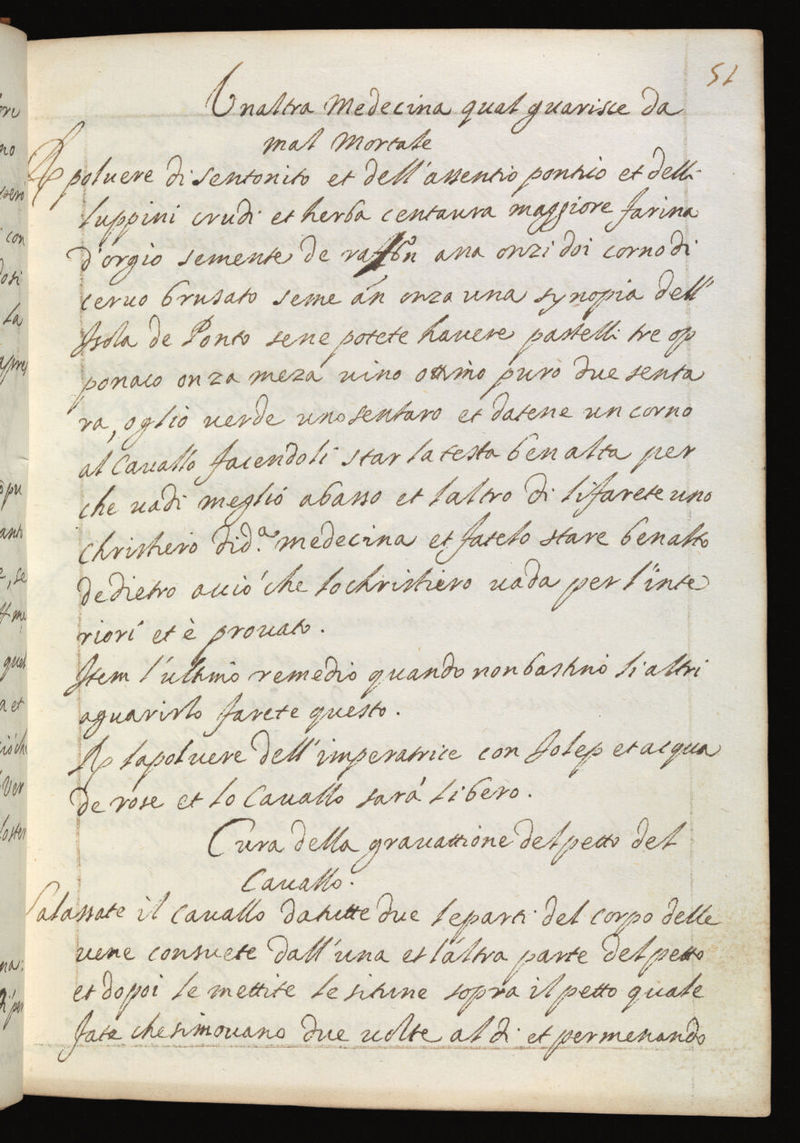 51
Unaltra Medecina qual guarisce da
mal Mortale
℞ poluere di sentonito et dell'assentio pontico et delli
luppini crudi et herba centaura maggiore farina
d'orgio semente de ana onzi doi corno di
ceruo brusato seme án onza una synopia dell'
Isola de Ponto sene potete hauere pastelli tre op
ponaco onza meza uino ottimo puro due senta
ra, oglio uerde uno sentaro et datene un corno
al Cauallo facendoli star la testa ben alta per
che uadi meglio abasso et laltro di li farete uno
christiero di d.ª medecina et fatelo stare ben alto
de dietro acció che lo christiero uada per l'inte
riori et è prouato.
Item l'ultimo remedio quando non bastino li altri
a guarirlo farete questo.
℞ la poluere dell'imperatrice con Jolep et acqua
de rose et lo Cauallo sará libero.
Cura della grauattione del petto del
Cauallo.
Salassate il Cauallo da tutte due le parti del corpo delle
uene consuete dall'una et l'altra parte del petto
et dopoi le mettite le situne sopra il petto quale
fate che si mouano due uolte al di et per menando